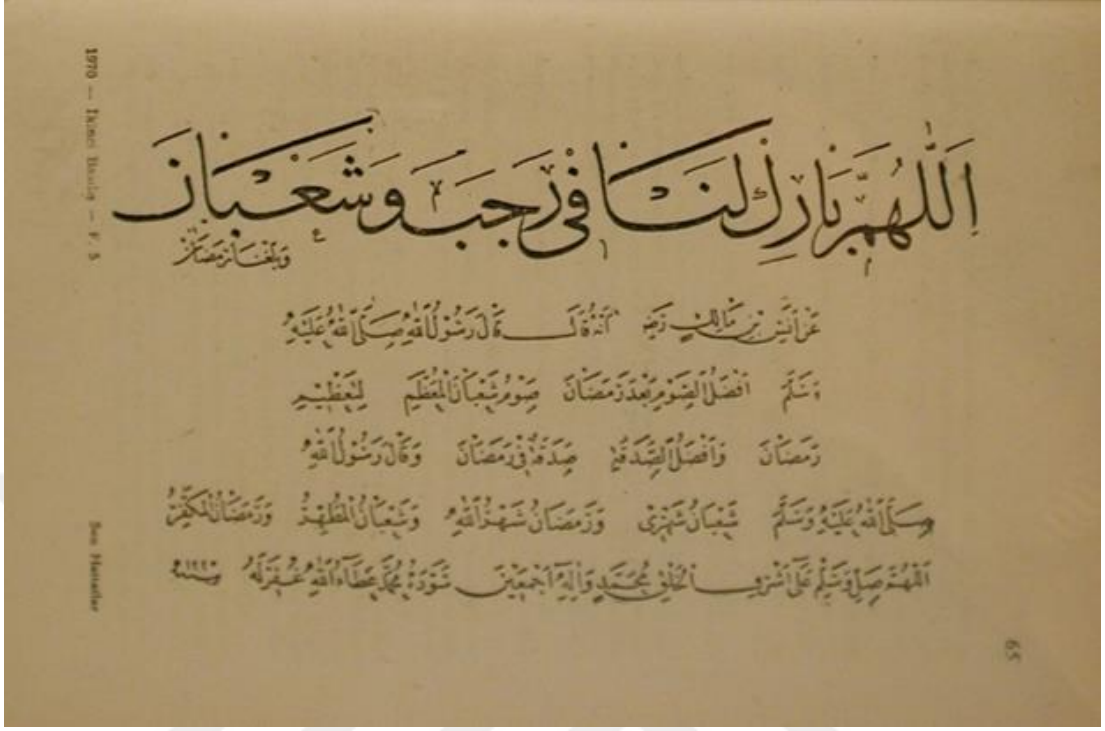 اَللّٰهُمَّ بَارِكْ لَنَا فِى رَجَبَ وَشَعْبَانَ
وَبَلِّغْنَا رَمَضَانَ
عَنْ اَنَسِ بْنِ مَالِكٍ رَضِهِ اَنَّهُ قَالَ قَالَ رَسُوْلُ اللّٰهِ صَلَّى اللّٰهُ عَلَيْهِ
وَسَلَّمَ اَفْضَلُ الصَّوْمِ بَعْدَ رَمَضَانَ صَوْمُ شَعْبَانَ الْمُعَظَّمِ لِتَعْظِيْمِ
رَمَضَانَ وَاَفْضَلُ الصَّدَقَةِ صَدَقَةٌ فِى رَمَضَانَ وَقَالَ رَسُوْلُ اللّٰهِ
صَلَّى اللّٰهُ عَلَيْهِ وَسَلَّمَ شَعْبَانُ شَهْرِى وَرَمَضَانُ شَهْرُ اللّٰهِ وَشَعْبَانُ الْمُطَهِّرُ وَرَمَضَانُ الْمُكَفِّرُ
اَللّٰهُمَّ صَلِّ وَسَلِّمْ عَلٰى اَشْرَفِ الْخَلْقِ مُحَمَّدٍ وَاٰلِهِ اَجْمَعِيْنَ سَوَّدَهُ مُحَمَّد عَطَاءُ اللّٰهِ غُفِرَ لَهُ
1970 — İkinci Baskı — F. 5
Son Hattatlar
65